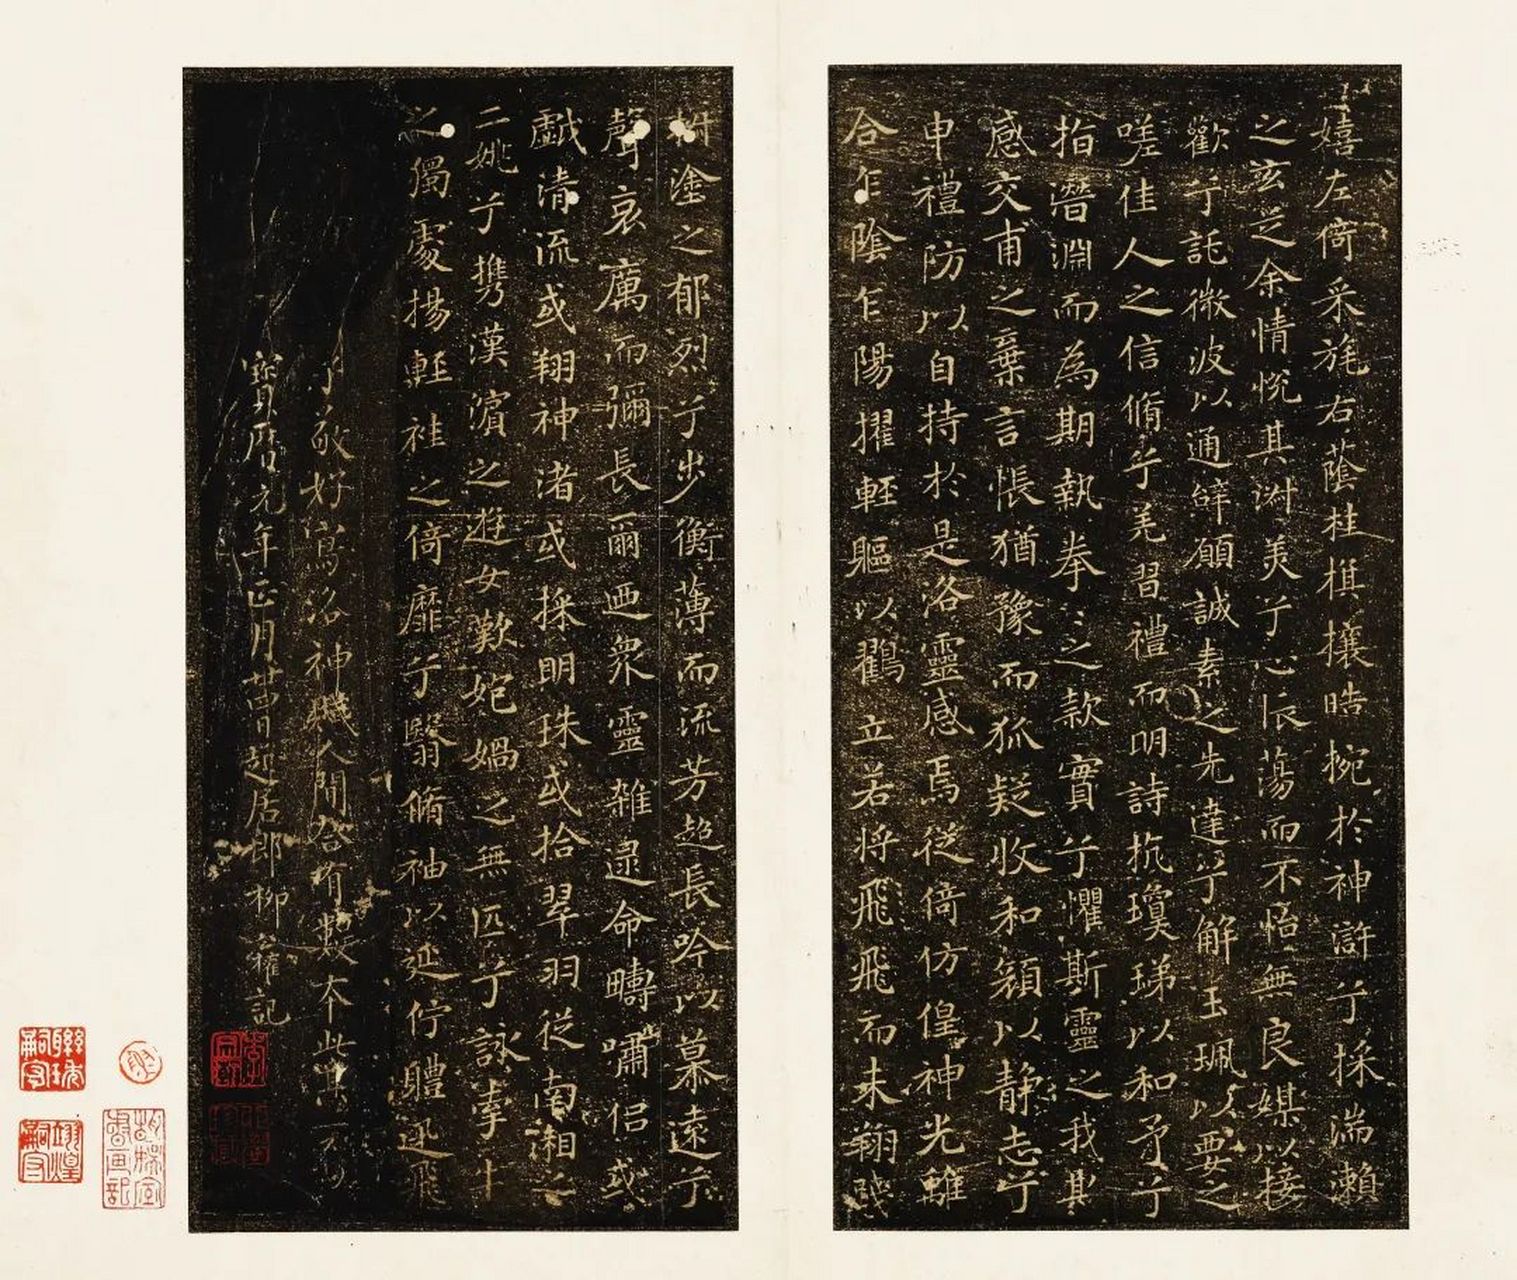 嬉左倚采旄右蔭桂旗攘皓捥於神滸兮採湍瀨
之玄芝余情悅其淑美兮心振蕩而不怡無良媒以接
歡兮託微波以通辭願誠素之先達兮解玉珮以要之
嗟佳人之信脩兮羌習禮而明詩抗瓊珶以和予兮
指潛淵而為期執拳〻之款實兮懼斯靈之我其
感交甫之棄言悵猶豫而狐疑收和顏以静志兮
申禮防以自持於是洛靈感焉従倚仿偟神光離
合乍陰乍陽擢軽軀以鸖立若将飛飛而未翔踐
塗之郁烈兮步衡薄而流芳超長吟以慕遠兮
聲哀厲而彌長爾迺衆靈雜遝命疇嘯侶或
戯清流或翔神渚或採明珠或拾翠羽従南湘之
二姚兮攜漢濱之遊女歎妃媧之無匹兮詠牽十
之獨處揚軽袿之倚靡兮翳脩袖以延佇體迅飛
子敬好寫洛神人間合有數本此其一
寳曆元年正月廿四日起居郎柳公權記